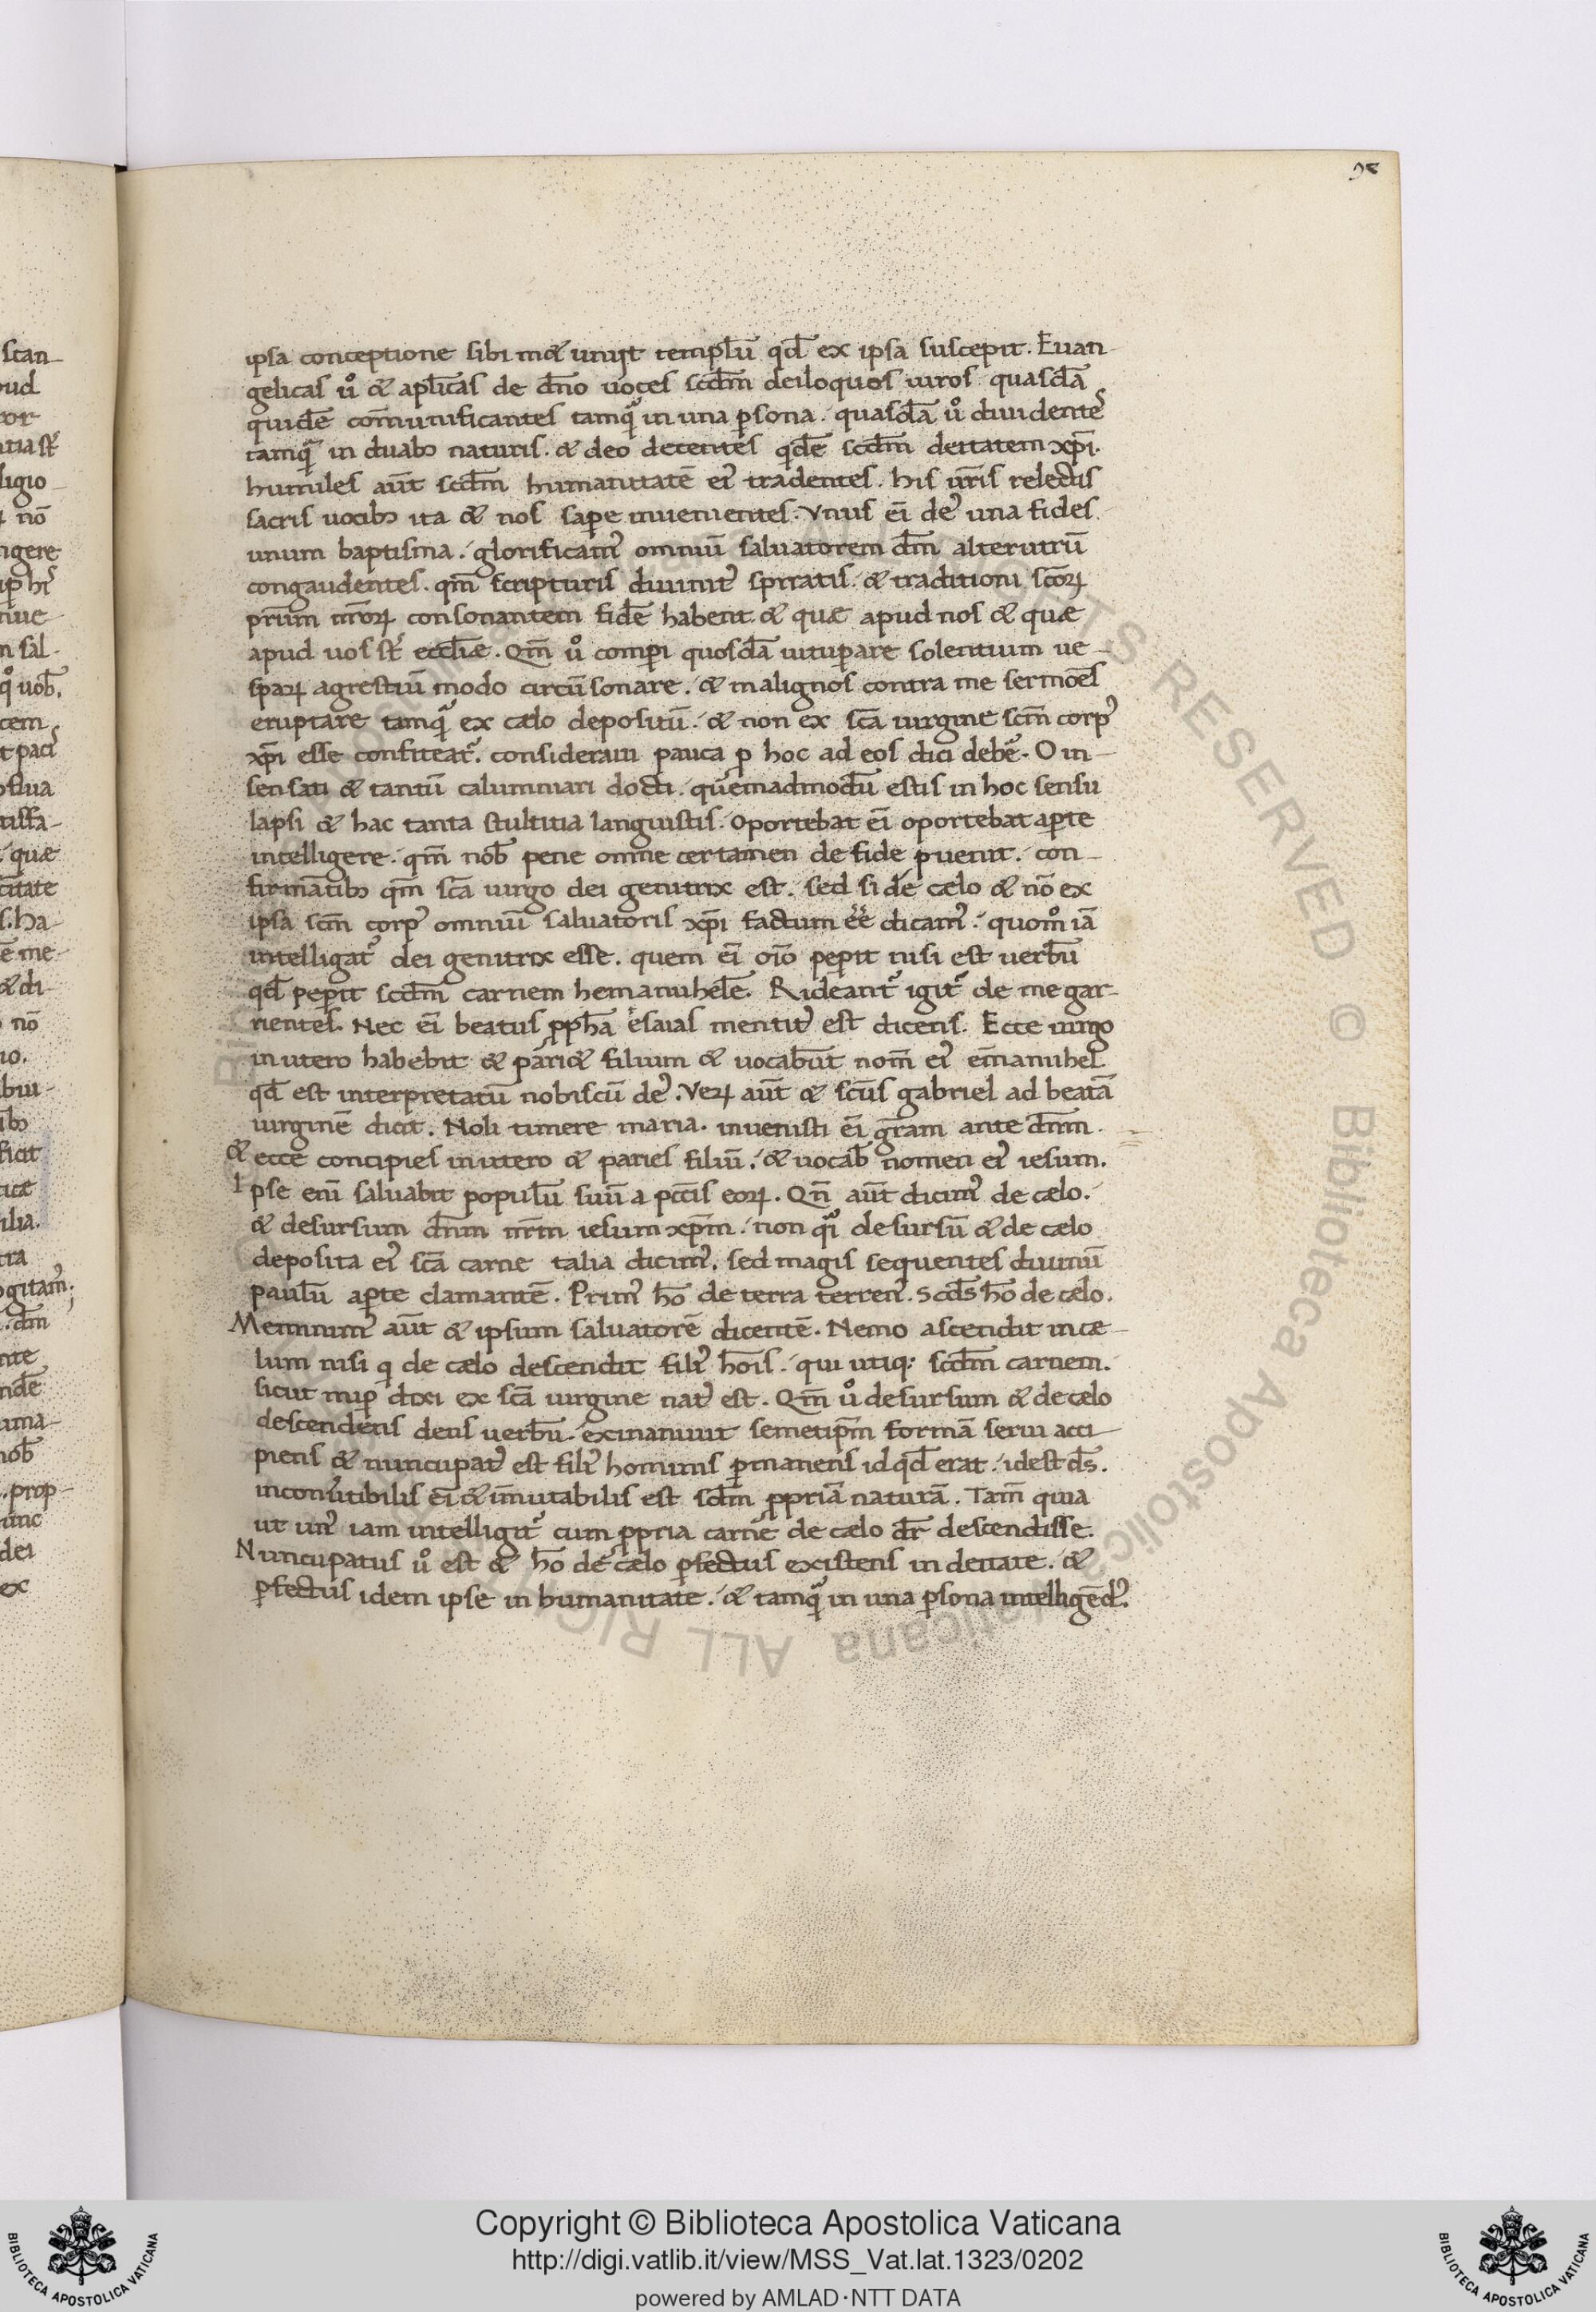 98
ipsa conceptione sibi met unijt templū qd̄ ex ipsa suscepit. Euan-
gelicas ů & apl̄icas de dn̄o uoces scdm̄ deiloquos uiros quasdā
quidē com̄unificantes tamq̃ in una ꝑsona. quasdā ů diuidentes
tamq̃ in duabꝫ naturis. & deo decentes qdē scdm̄ deitatem xp̄i.
humiles aūt scdm̄ humanitatē eiꝰ tradentes. his ur̄is relectis
sacris uocibꝫ ita & nos saꝑe inuenientes. Vnus ei̅ deꝰ una fides
unum baptisma. glorificamꝰ omniū saluatorem dm̄ alterutrū
congaudentes. qm̄ scripturis diuinitꝰ spiratis. & traditioni sc̄oꝝ
pr̄um nr̄oꝝ consonantem fidē habent & quæ apud nos & quæ
apud uos st̄ eccl̄iæ. Qm̄ ů comꝑi quosdā uituꝑare solentium ue-
spaꝝ agrestiū modo circū sonare. & malignos contra me sermoēs
eruptare tamq̃ ex cælo depositū. & non ex sc̄a uirgine scm̄ corpꝰ
xp̄i esse confiteat᷑. consideraui pauca ꝓ hoc ad eos dici deb̄e. O in-
sensati & tantū calumniari docti. quemadmodū estis in hoc sensu
lapsi & hac tanta stultitia languistis. Oportebat ei̅ oportebat aꝑte
intelligere. qm̄ nob̄ pene omne certamen de fide ꝓuenit. con-
firmātibꝫ qm̄ sc̄a uirgo dei genitrix est. sed si de cælo & nō ex
ipsa scm̄ corpꝰ omniū saluatoris xp̄i factum eē dicamꝰ. quom̊ iā
intelligat᷑ dei genitrix esse. quem ei̅ oīo peꝑit nisi est uerbū
qd̄ peꝑit scdm̄ carnem hemanuhelē. Rideant᷑ igit᷑ de me gar-
rientes. Nec ei̅ beatus ꝓph̄a esaias mentitꝰ est dicens. Ecce uirgo
in utero habebit & pariet filium & uocabūt nom̄ eiꝰ em̄anuhel
qd̄ est interpretatū nobiscū deꝰ. Veꝝ aūt & sc̄us gabriel ad beatā
uirginē dicit. Noli timere maria. inuenisti ei̅ gr̄am ante dn̄m.
& ecce concipies in utero & paries filiū. & uocab̄ nomen eiꝰ iesum.
Ipse eni̅ saluabit populū suū a pcc̄is eoꝝ. Qn̄ aūt dicimꝰ de cælo.
& desursum dn̄m nr̄m iesum xp̄m. non q̃ desursū & de cælo
deposita eiꝰ sc̄a carne talia dicimꝰ. sed magis sequentes diuinū
paulū aꝑte clamantē. Primꝰ hō de terra terrenꝰ. Scd̄s hō de cælo.
Meminimꝰ aūt & ipsum saluatorē dicentē. Nemo ascendit in cæ-
lum nisi q de cælo descendit filiꝰ hoīs. qui utiqꝫ scdm̄ carnem.
sicut nuꝑ dixi ex sc̄a uirgine natꝰ est. Qm̄ ů desursum & de cælo
descendens deus uerbū. exinaniuit semetip̄m formā serui acci-
piens & nuncupatꝰ est filiꝰ hominis ꝑmanens id qd̄ erat. idest ds̄.
inconūtibilis ei̅ & im̄utabilis est scdm̄ ꝓpriā naturā. Tam̄ quia
ut unꝰ iam intelligit᷑ cum ꝓpria carne de cælo dr̄ descendisse.
Nuncupatus ů est & hō de cælo ꝑfectus existens in deitate. &
ꝑfectus idem ipse in humanitate. & tamq̃ in una ꝑsona intelligēdꝰ.
Copyright © Biblioteca Apostolica Vaticana
http://digi.vatlib.it/view/MSS_Vat.lat.1323/0202
powered by AMLAD·NTT DATA